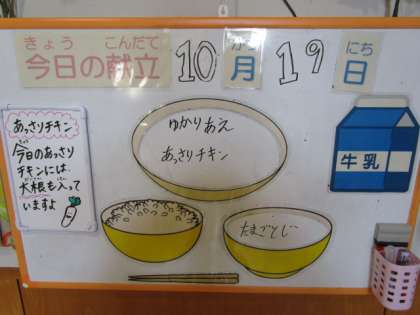 きょう こんだて
今日の献立
10
がつ
月
19
にち
日
あっさりチキン
今日のあっさり
チキンには
大根も入って
いますよ
ゆかりあえ
あっさりチキン
たまごとじ
牛乳